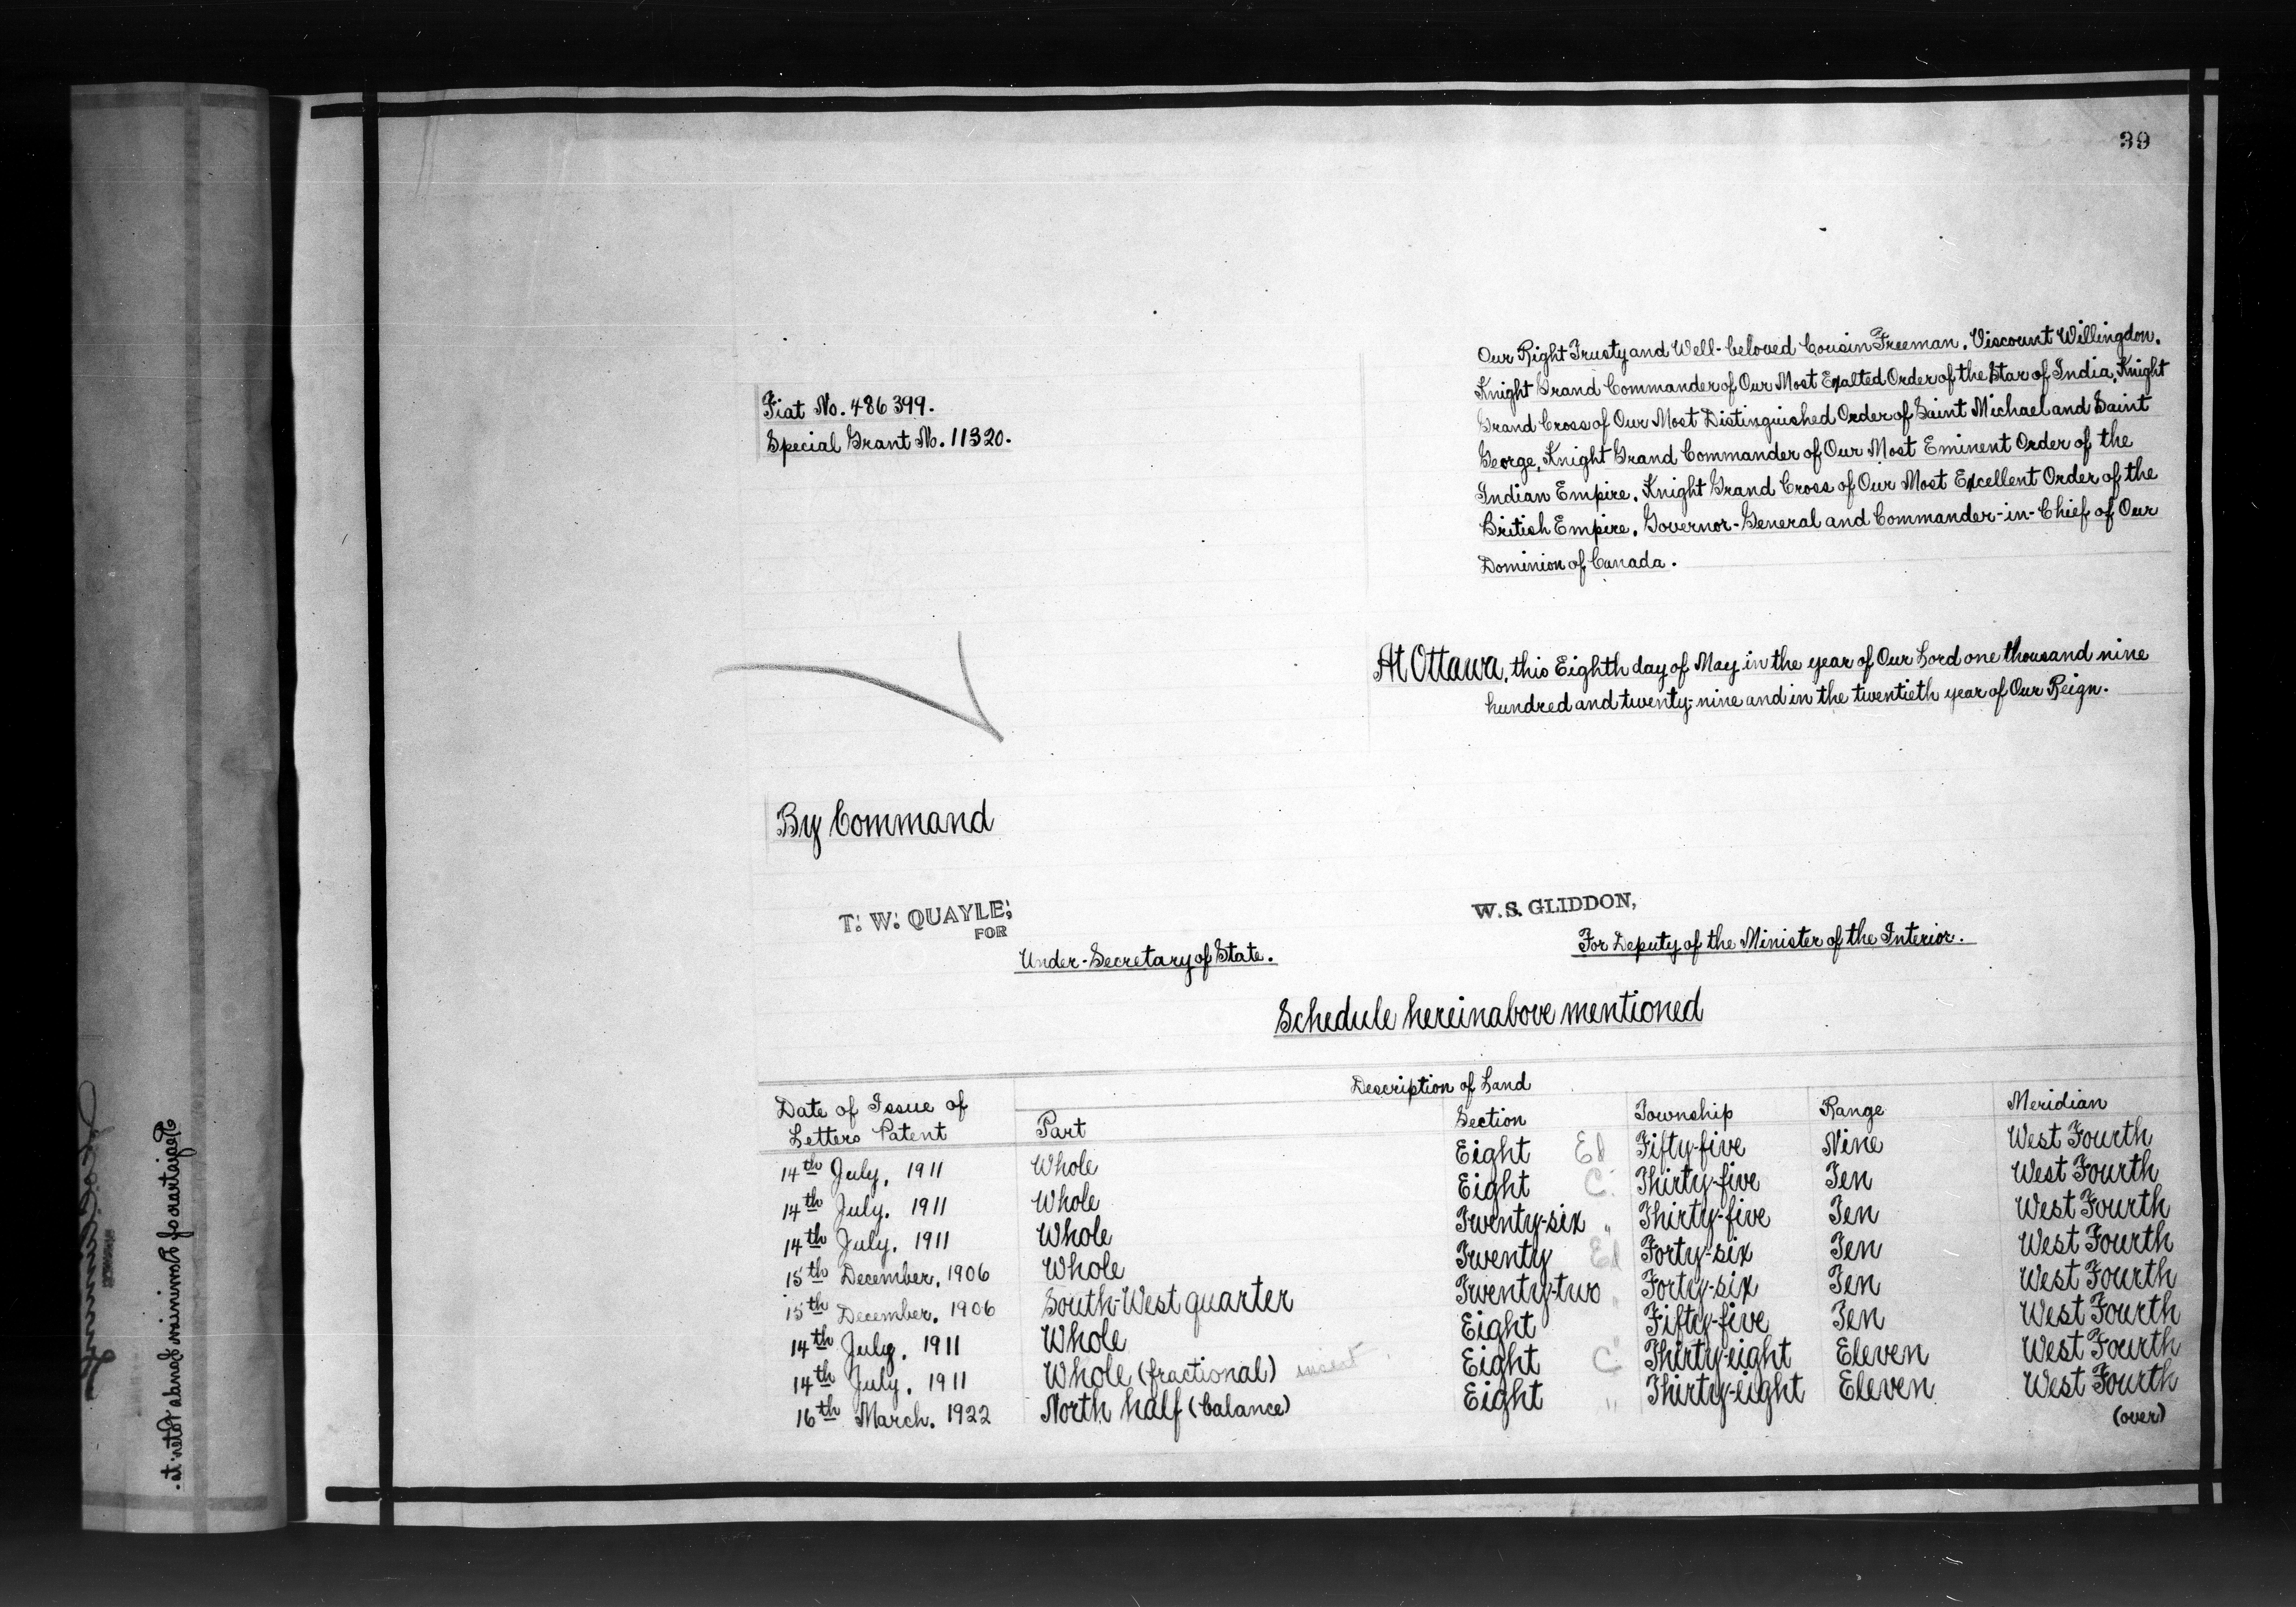 39
Our Right Trusty and Well-beloved Cousin Freeman, Viscount Willingdon,
Knight Grand Commander of Our Most Exalted Order of the Star of India, Knight
Grand Cross of Our Most Distinguished Order of Saint Michael and Saint
George, Knight Grand Commander of Our Most Eminent Order of the
Indian Empire, Knight Grand Cross of Our Most Excellent Order of the
British Empire, Governor-General and Commander-in-Chief of Our
Dominion of Canada.
Fiat No. 486399.
Special Grant No. 11320.
At Ottawa, this Eighth day of May in the year of Our Lord one thousand nine
hundred and twenty-nine and in the twentieth year of Our Reign.
By Command
T. W. QUAYLE,
FOR
Under-Secretary of State.
W. S. GLIDDON,
For Deputy of the Minister of the Interior.
Schedule hereinabove mentioned
Date of Issue of Letters Patent
Description of Land
Part Section Township Range Meridian
14th July, 1911 Whole Eight Ed Fifty-five Nine West Fourth
14th July, 1911 Whole Eight C. Thirty-five Ten West Fourth
14th July, 1911 Whole Twenty-six " Thirty-five Ten West Fourth
15th December, 1906 Whole Twenty Ed Forty-six Ten West Fourth
15th December, 1906 South-West quarter Twenty-two " Forty-six Ten West Fourth
14th July, 1911 Whole Eight Fifty-five Ten West Fourth
14th July, 1911 Whole (fractional) insert Eight C Thirty-eight Eleven West Fourth
16th March, 1922 North half (balance) Eight " Thirty-eight Eleven West Fourth
(over)